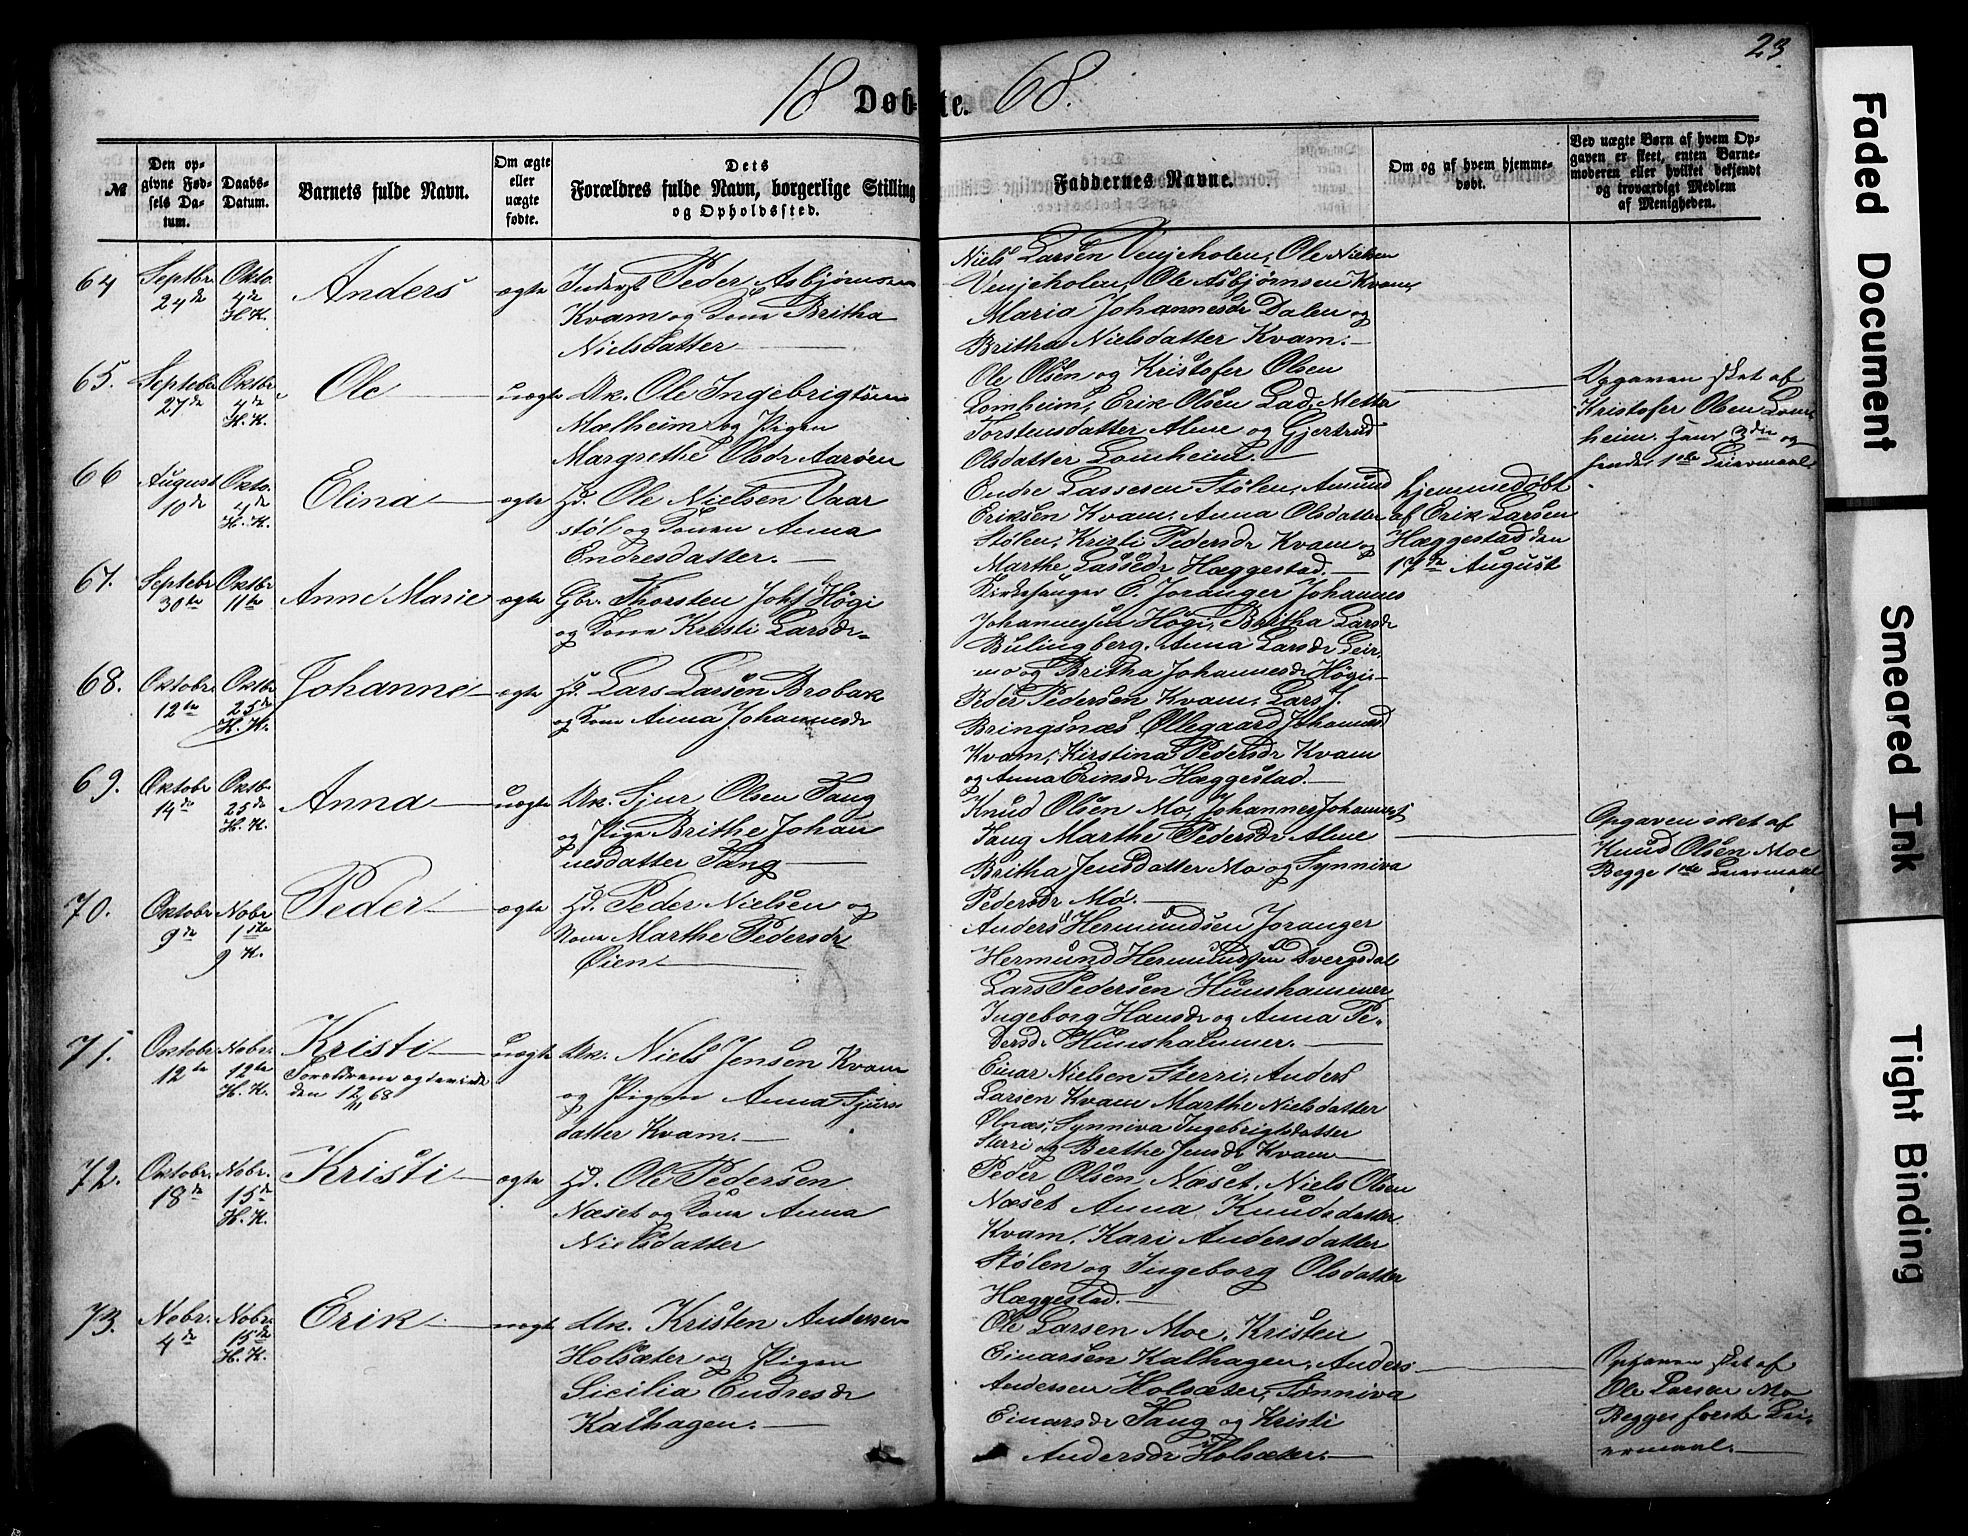 23.
18 Døbte. 68.
№
Den opgivne Fødsels Datum.
Daabs-Datum.
Barnets fulde Navn.
Om ægte eller uægte fødte.
Dets Forældres fulde Navn, borgerlige Stilling og Opholdssted.
Faddernes Navne.
Om og af hvem hjemmedøbt.
Ved uægte Børn af hvem Opgaven er skeet, enten Barnemoderen eller hvilket bekjendt og troværdigt Medlem af Menigheden.
64
Septbr 24de
Oktb. 4de H. K.
Anders
ægte
Peder Asbjørnsen
Kvam og Kone Britha
Nielsdatter
Niels Larsen Venjeholen, Ole Nielsen
Venjeholen, Ole Asbjørnsen Kvam,
Maria Johannesdr Dalen og
Britha Nielsdatter Kvam.
65.
Septebr 27de
Oktbr 4de H. K.
Ole
uægte
Uk. Ole Ingebrigtsen
Mælheim og Pigen
Margrethe Olsdr Aarøen
Ole Olsen og Kristofer Olsen
Lomheim, Erik Olsen Lad, Metta
Torstensdatter Alme og Gjertrud
Olsdatter Lomheim.
Opgaven skeet af
Kristofer Olsen Lom
heim. Hans 3die og
hendes 1ste Leiermaal
66
August 10de
Oktb. 4de H. K.
Elina
ægte
Hd. Ole Nielsen Vaar
støl og Konen Anna
Endresdatter.
Endre Lassesen Stølen, Amund
Eriksen Kvam, Anna Olsdatter
Stølen, Kristi Pedersdr Kvam og
Marthe Lassedr Hæggestad.
hjemmedøbt
af Erik Larsen
Hæggestad den
17de August
67.
Septebr 30te
Oktbr 11te
Anne Marie
ægte
Gbr. Thorsten Johs Høgi
og Kone Kristi Larsdr
Kirkesanger E. Joranger Johannes
Johannessen Høgi, Britha Larsdr
Bulingberg, Anna Larsdr Leir
mo og Britha Johannesdr Høgi.
68.
Oktobr 12te
Oktbr 25de H. K.
Johanne
ægte
Hd. Lars Larsen Brobak
og Kone Anna Johannesdr
Peder Pedersen Kvam, Lars J.
Bringsnæs, Ollegaard Johannesd
Kvam, Kirstina Pedersdr Kvam
og Anna Eriksdr Hæggestad.
69.
Oktobr 14de
Oktb. 25de H. K.
Anna
uægte
Uk. Sjur Olsen Tang
og Pige Brithe Johan
nesdatter Tang
Knud Olsen Mo, Johannes Johannes
Tang Marthe Pedersdr Alme
Britha Jensdatter Mo og Synniva
Pedersdr Mo.
Opgaven skeet af
Knud Olsen Moe
Begge 1ste Leiermaal
70.
Oktobr 9de
Nobr 1ste
Peder
ægte
Hd. Peder Nielsen og
Kone Marthe Pedersdr
Øien
Anders Hermundsen Joranger
Hermund Hermundsen Dvergsdal
Lars Pedersen Hunshammer
Ingeborg Hansdr og Anna Pe-
dersdr Hunshammer.
71.
Oktobr 12te
Nobr. 12te H. K.
Kristi
Forældrene ægteviede
den 12/11 68
uægte
Uk. Niels Jensen Kvam
og Pigen Anna Sjurs
datter Kvam.
Einar Nielsen Sterri, Anders
Larsen Kvam Marthe Nielsdatter
Ølnæs, Synniva Ingebrigtsdatter
Sterri og Berthe Jensdr Kvam
72.
Oktobr. 18de
Nobr. 15de H. K.
Kristi
ægte
Hd. Ole Pedersen
Næset og Kone Anna
Nielsdatter
Peder Olsen Næset, Niels Olsen
Næset Anna Knudsdatter
Kvam, Kari Andersdatter
Stølen og Ingeborg Olsdatter
Hæggestad.
73.
Nobr. 4de
Nobr. 15de H. K.
Erik
uægte
Uk. Kristen Andersen
Holsæter og Pigen
Sicilia Endresdr
Kalhagen.
Ole Larsen Moe, Kristen
Einarsen Kalhagen, Anders
Andersen Holsæter, Sønniva
Einarsdr Tang og Kristi
Andersdr Holsæter.
Opgaven skeet af
Ole Larsen Mo
Begges første Lei-
ermaal.
Faded Document
Smeared Ink
Tight Binding